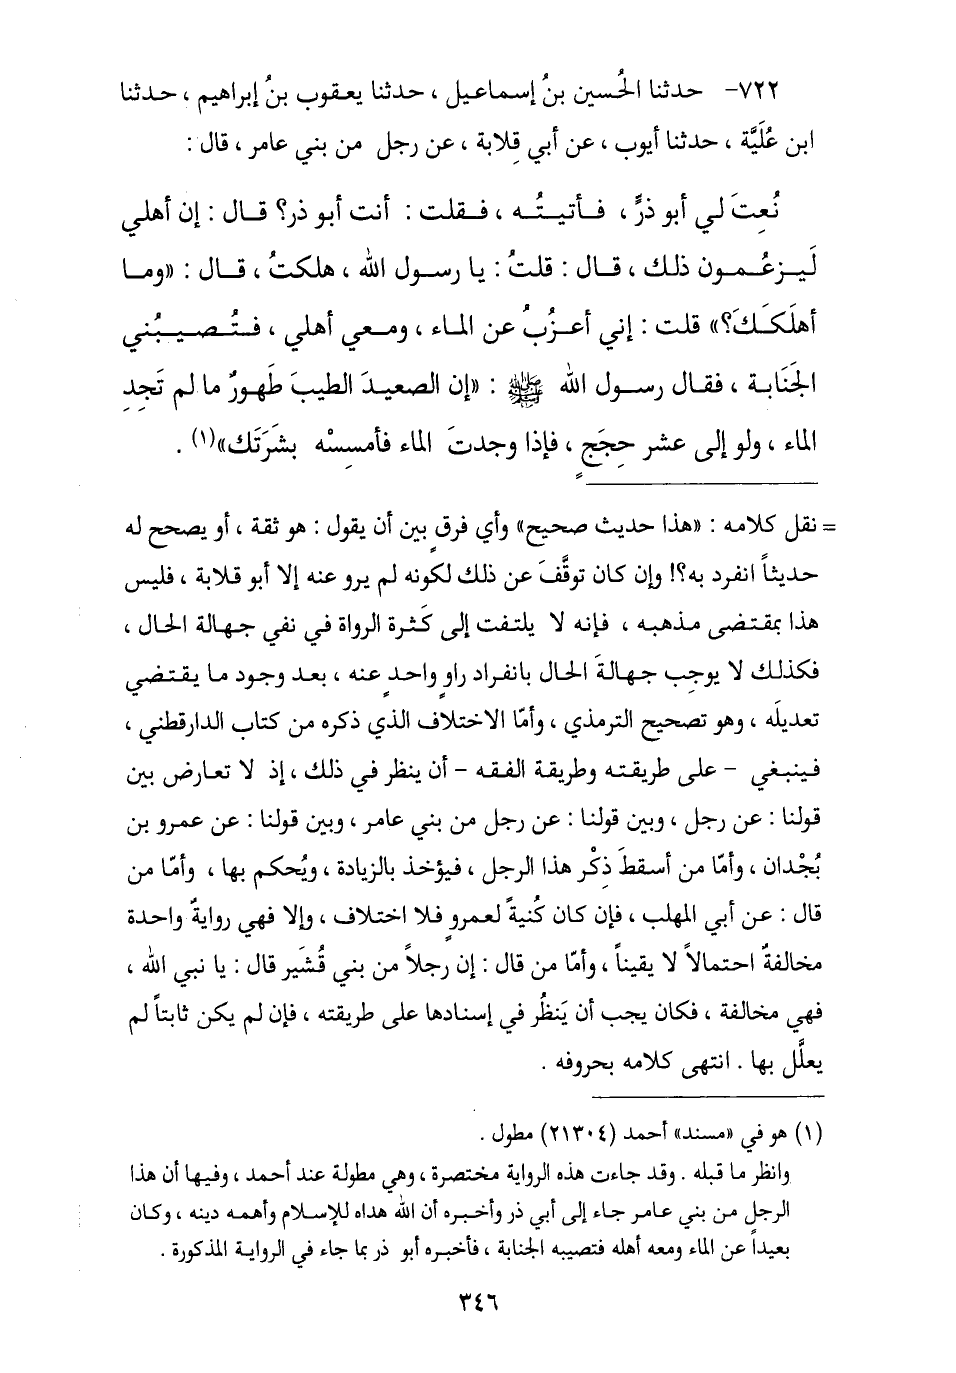 ٧٢٢- حدثنا الحُسين بنُ إسماعيل ، حدثنا يعقوب بنُ إبراهيم ، حدثنا
ابن عُلَيَّة ، حدثنا أيوب ، عن أبي قِلابة ، عن رجل من بني عامر ، قال :
نُعِتَ لي أبو ذرٍّ ، فأتيتُه ، فقلت : أنت أبو ذر؟ قال : إن أهلي
لَيزعُمون ذلك ، قال : قلتُ : يا رسول الله ، هلكتُ ، قال : «وما
أهلَكَكَ؟» قلت : إني أعزُبُ عن الماء ، ومعي أهلي ، فتُصيبُني
الجَنَابة ، فقال رسول الله ﷺ : «إن الصعيدَ الطيبَ طَهورٌ ما لم تَجِدِ
الماء ، ولو إلى عشر حِجَجٍ ، فإذا وجدتَ الماء فأمسِسْه بشَرَتَك»(١) .
= نقل كلامه : «هذا حديث صحيح» وأي فرقٍ بين أن يقول : هو ثقة ، أو يصحح له
حديثاً انفرد به؟! وإن كان توقَّفَ عن ذلك لكونه لم يرو عنه إلا أبو قلابة ، فليس
هذا بمقتضى مذهبه ، فإنه لا يلتفت إلى كَثرة الرواة في نفي جهالة الحال ،
فكذلك لا يوجِب جهالةَ الحال بانفراد راوٍ واحدٍ عنه ، بعد وجود ما يقتضي
تعديلَه ، وهو تصحيح الترمذي ، وأمّا الاختلاف الذي ذكره من كتاب الدارقطني ،
فينبغي - على طريقته وطريقة الفقه - أن ينظر في ذلك ، إذ لا تعارض بين
قولنا : عن رجل ، وبين قولنا : عن رجل من بني عامر ، وبين قولنا : عن عمرو بن
بُجْدان ، وأمّا من أسقطَ ذِكْر هذا الرجل ، فيؤخذ بالزيادة ، ويُحكم بها ، وأمّا من
قال : عن أبي المهلب ، فإن كان كُنيةً لعمرٍو فلا اختلاف ، وإلا فهي روايةٌ واحدة
مخالفةٌ احتمالاً لا يقيناً ، وأمّا من قال : إن رجلاً من بني قُشَير قال : يا نبي الله ،
فهي مخالفة ، فكان يجب أن يَنظُر في إسنادها على طريقته ، فإن لم يكن ثابتاً لم
يعلَّل بها . انتهى كلامه بحروفه .
(١) هو في «مسند» أحمد (٢١٣٠٤) مطول .
وانظر ما قبله . وقد جاءت هذه الرواية مختصرة ، وهي مطولة عند أحمد ، وفيها أن هذا
الرجل من بني عامر جاء إلى أبي ذر وأخبره أن الله هداه للإسلام وأهمه دينه ، وكان
بعيداً عن الماء ومعه أهله فتصيبه الجنابة ، فأخبره أبو ذر بما جاء في الرواية المذكورة .
٣٤٦